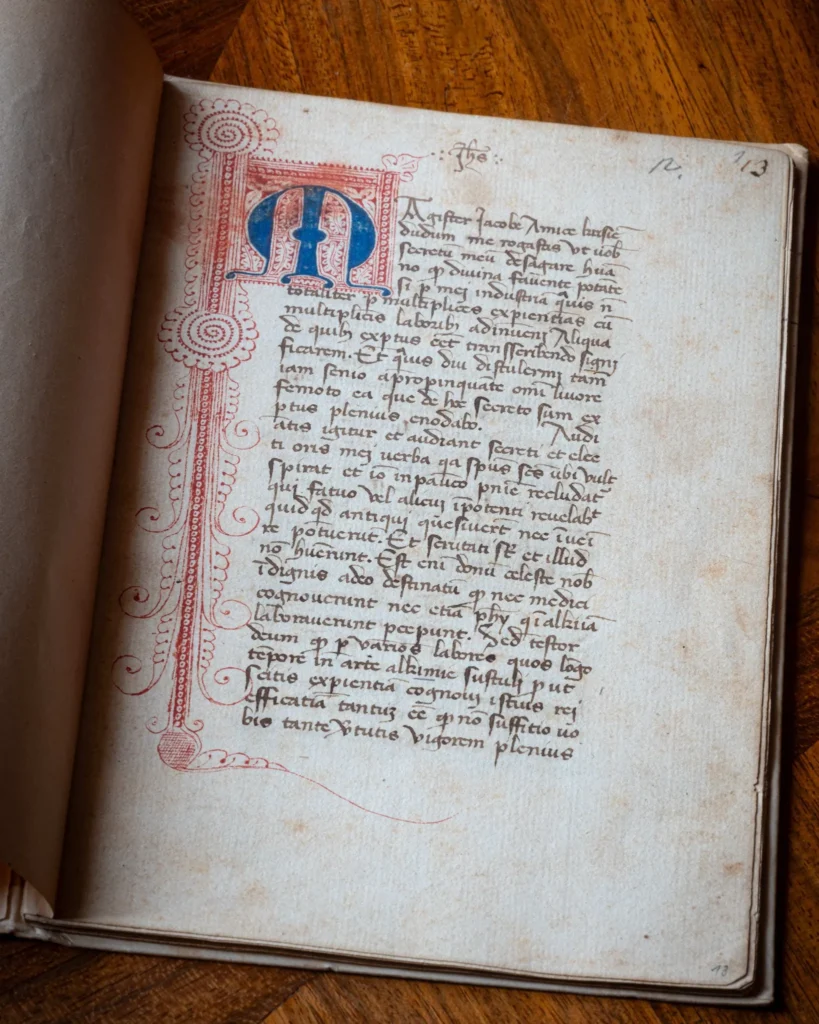 Jhs
12. 13
Magister Jacobe Amice karissie
dudum me rogastis ut uob
secretu meu desagare huā
no qp diuina fauente potāte
si p mei industria quis n̄
totaliter p multiplices expiencias cū
multiplicis laborib adinueni Aliqua
de quib exptus eēt transscribendo signi
ficarem. Et quis diu distulerim tam
iam senio apropinquate omi liuore
semoto ea que de hoc secreto sum ex
ptus plenius enodabo. Audi
atis igitur et audiant secreti et elec
ti oris mei uerba qa spūs scs ubi uult
spirat et iō in pauco pnie recludat
qui fatuo uel alicui īpotenti reuelabt
quid qd antiqui quesiuert nec īueī
re potuerut. Et scrutati st et illud
nō hūerunt. Est eni donū celeste nob
īdignis adeo destinatū qp nec medici
cognouerunt nec etiā phy qi alkiiā
laborauerunt pcepunt. Sed testor
deum qp p varios labores quos lōgo
tēpore in arte alkimie sustuli p ut
scitis expienciā cognoui istius rei
efficatiā tantuz eē qp nō suffitio uo
bis tante vtutis uigorem plenius
13